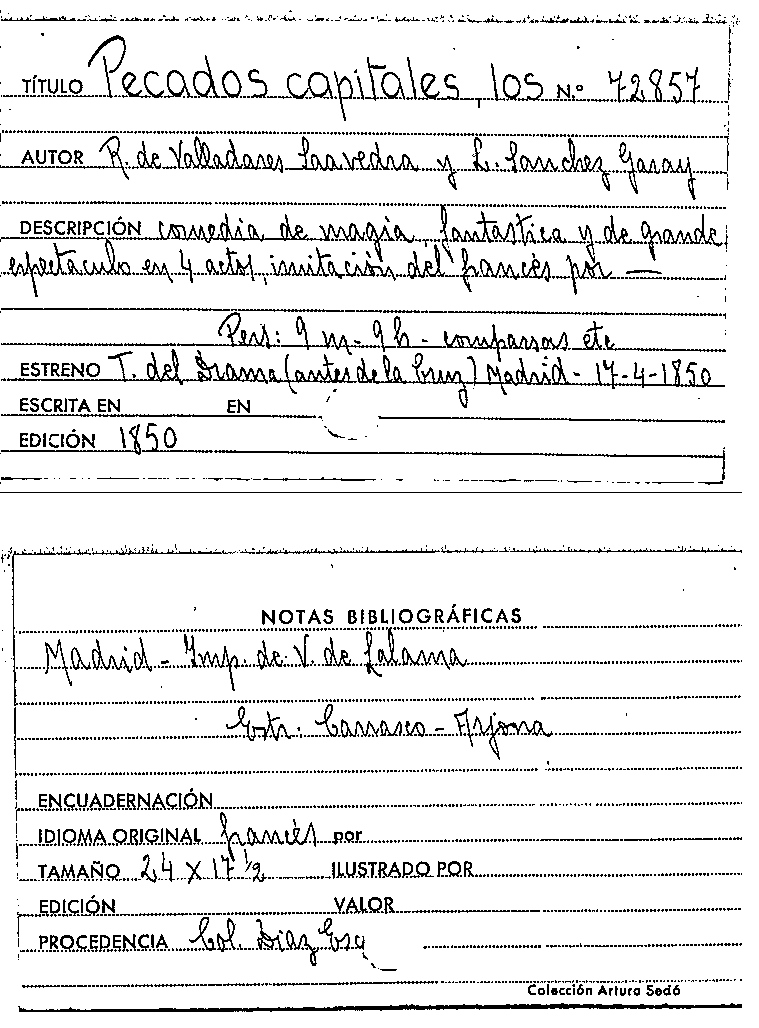 TÍTULO Pecados capitales, los N.º 72857
AUTOR R. de Valladares Saavedra y L. Sanchez Garay
DESCRIPCIÓN comedia de magia, fantastica y de grande
espectaculo en 4 actos, imitación del francés por —
Pers: 9 m - 9 h - comparsas etc
ESTRENO T. del Drama (antes de la Cruz) Madrid - 17-4-1850
ESCRITA EN EN
EDICIÓN 1850
NOTAS BIBLIOGRÁFICAS
Madrid - Imp. de V. de Lalama
Estr. Carrasco - Arjona
ENCUADERNACIÓN
IDIOMA ORIGINAL francés por
TAMAÑO 24 X 17 1/2 ILUSTRADO POR
EDICIÓN VALOR
PROCEDENCIA Col. Diaz Esq
Colección Arturo Sedó